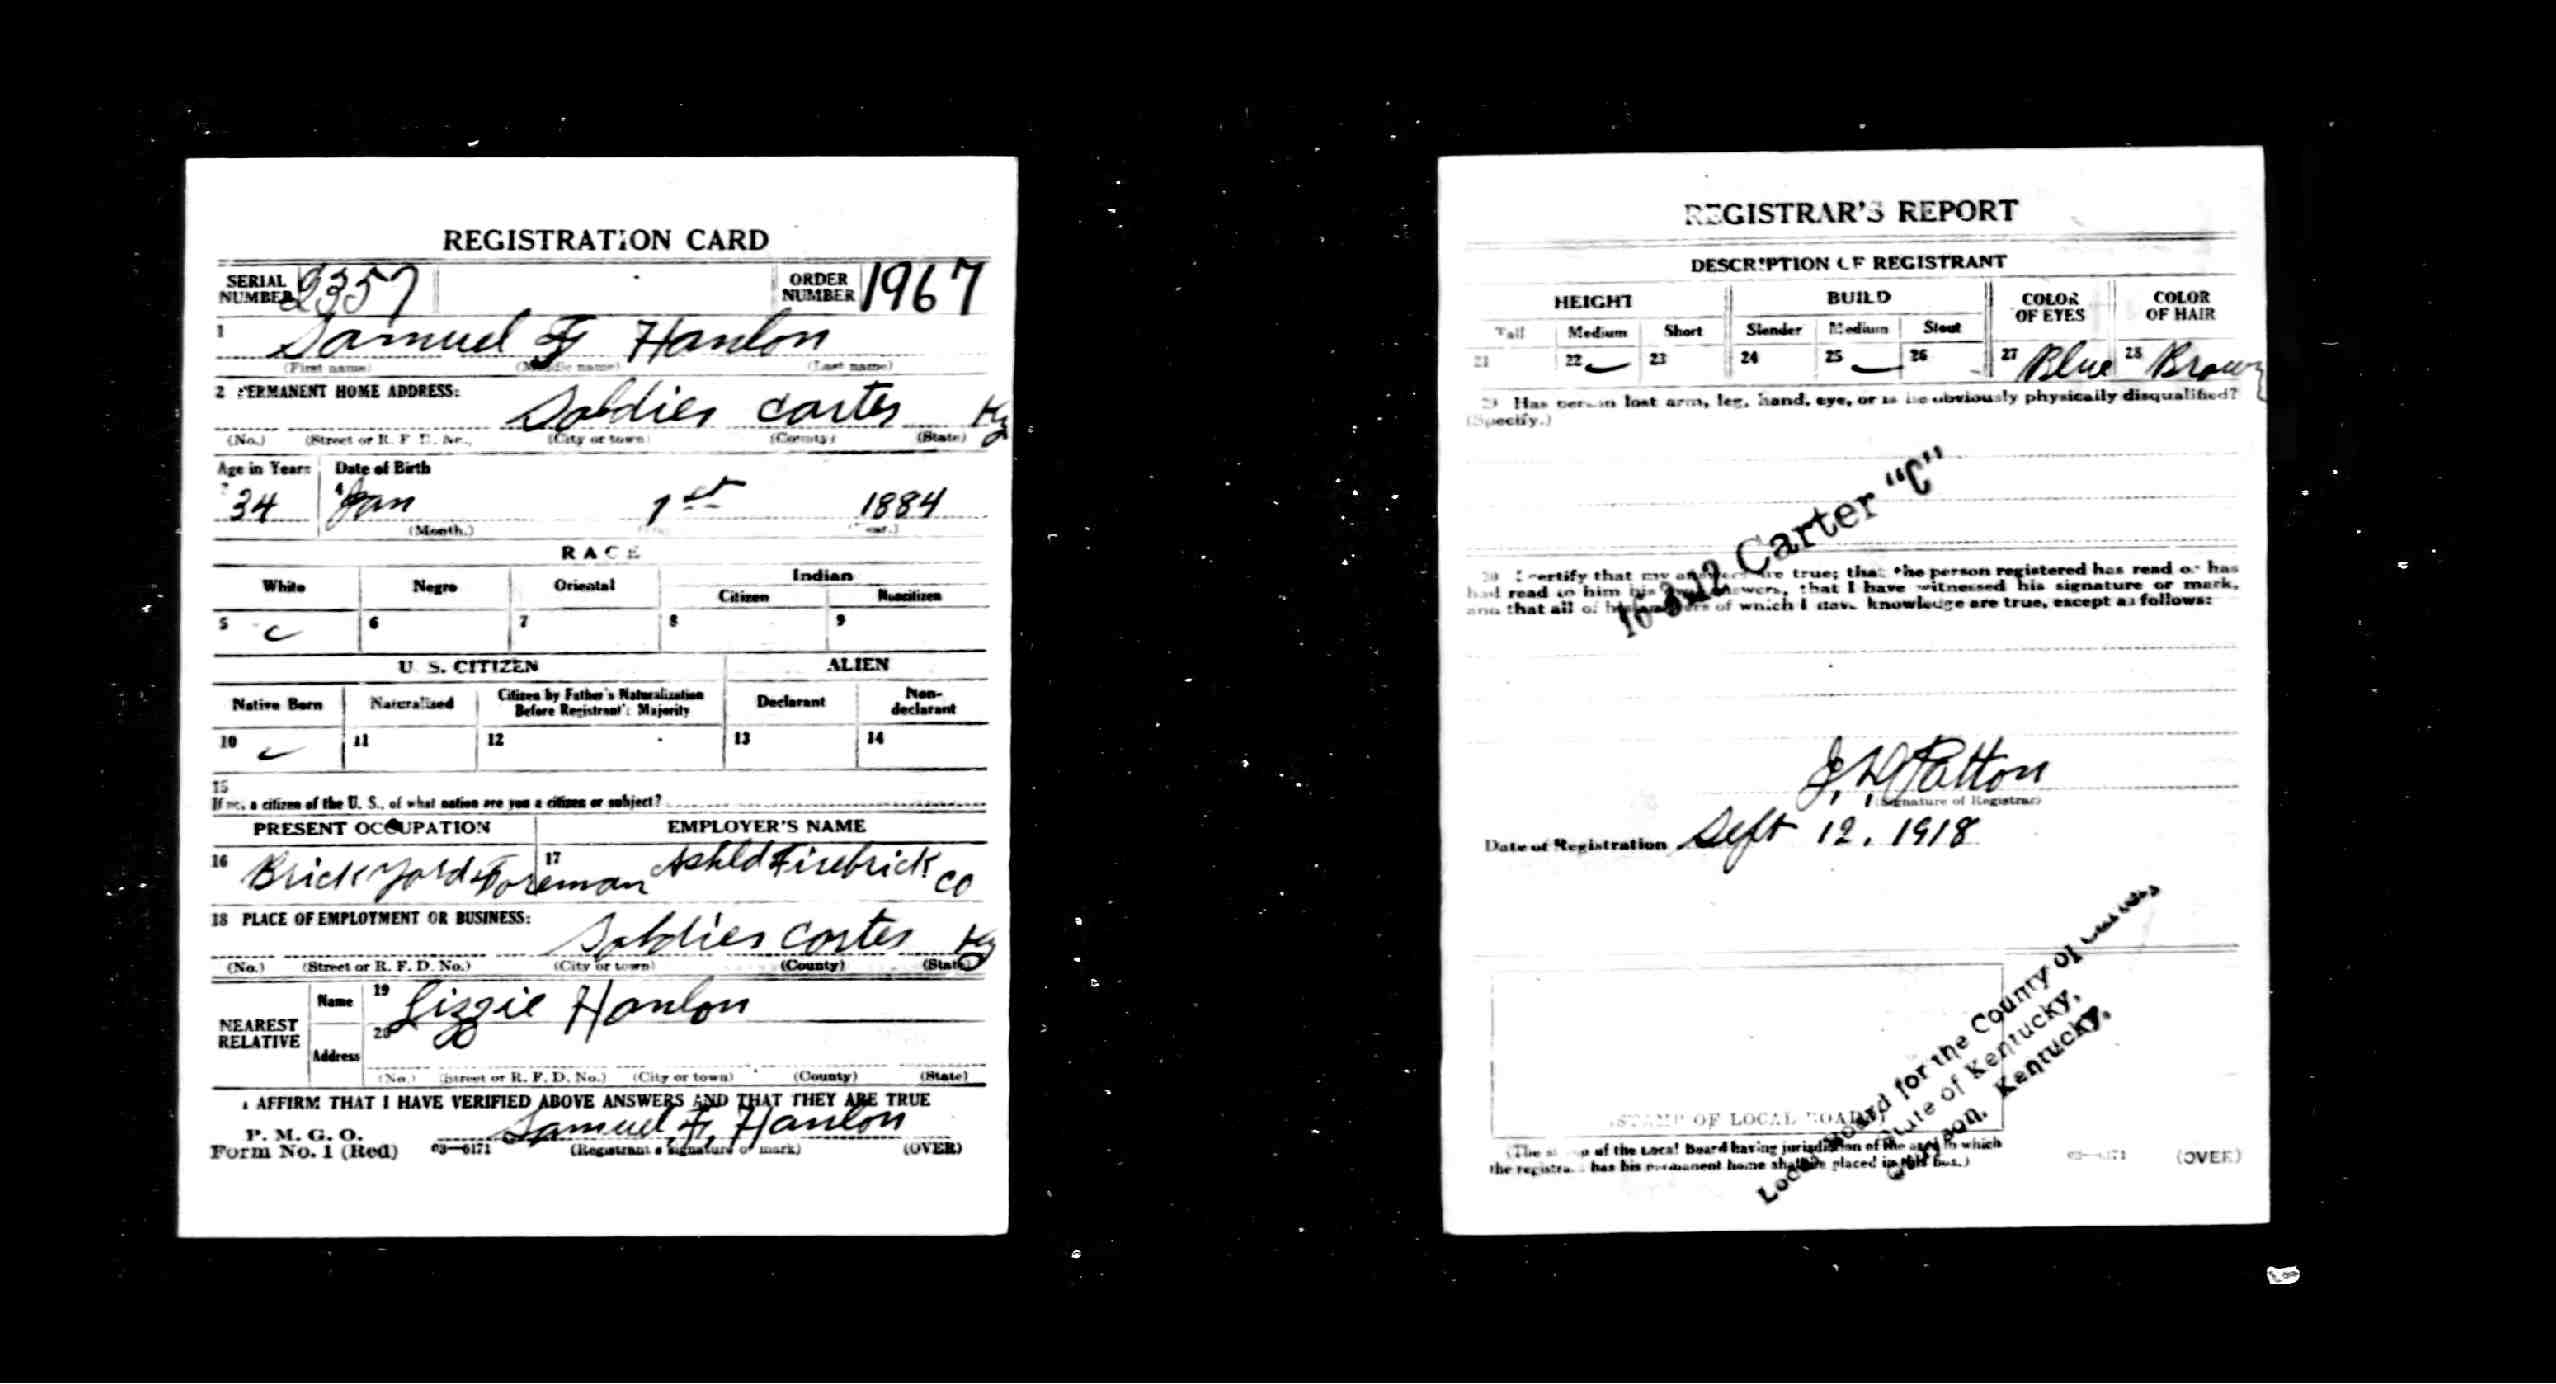 REGISTRATION CARD
SERIAL NUMBER 2357 ORDER NUMBER 1967
1 Samuel F Hanlon
(First name) (Middle name) (Last name)
2 PERMANENT HOME ADDRESS:
Soldier Carter Ky
(No.) (Street or R. F. D. No.) (City or town) (County) (State)
Age in Years Date of Birth
3 34 4 Jan 1st 1884
(Month.) (Year.)
RACE
White Negro Oriental Indian
Citizen Noncitizen
5 6 7 8 9
U. S. CITIZEN ALIEN
Native Born Naturalized Citizen by Father's Naturalization Before Registrant's Majority Declarant Non-declarant
10 11 12 13 14
15
If not a citizen of the U. S., of what nation are you a citizen or subject?
PRESENT OCCUPATION EMPLOYER'S NAME
16 Brick yard Foreman 17 Ashld Firebrick Co
18 PLACE OF EMPLOYMENT OR BUSINESS:
Soldier Carter Ky
(No.) (Street or R. F. D. No.) (City or town) (County) (State)
NEAREST RELATIVE Name 19 Lizzie Hanlon
Address 20
(No.) (Street or R. F. D. No.) (City or town) (County) (State)
I AFFIRM THAT I HAVE VERIFIED ABOVE ANSWERS AND THAT THEY ARE TRUE
P. M. G. O.
Form No. 1 (Red) 03—6171 Samuel F. Hanlon
(Registrant's signature or mark) (OVER)
REGISTRAR'S REPORT
DESCRIPTION OF REGISTRANT
HEIGHT BUILD COLOR OF EYES COLOR OF HAIR
Tall Medium Short Slender Medium Stout
21 22 23 24 25 26 27 Blue 28 Brown
29 Has person lost arm, leg, hand, eye, or is he obviously physically disqualified?
(Specify.)
16-3-12 Carter "C"
30 I certify that my answers are true; that the person registered has read or has
had read to him his own answers, that I have witnessed his signature or mark,
and that all of his answers of which I have knowledge are true, except as follows:
J. D. Patton
(Signature of Registrar)
Date of Registration Sept 12, 1918
Local Board for the County of Carter,
State of Kentucky,
Grayson, Kentucky.
(STAMP OF LOCAL BOARD)
(The stamp of the Local Board having jurisdiction of the area in which
the registrant has his permanent home shall be placed in this box.)
03—6171 (OVER)